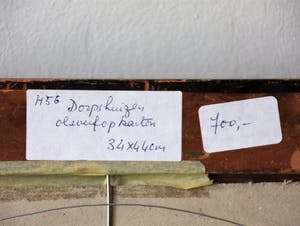 H56 Dorpshuizen
olieverf op karton
34x44cm
700,-